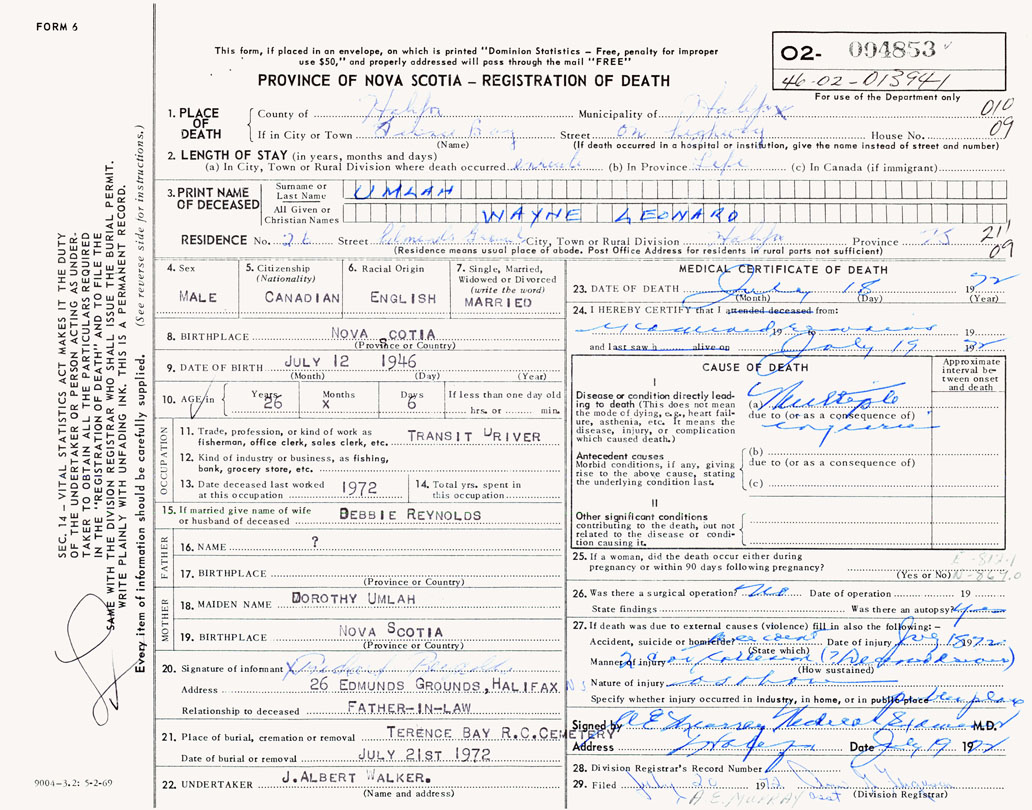 FORM 6
This form, if placed in an envelope, on which is printed "Dominion Statistics – Free, penalty for improper
use $50," and properly addressed will pass through the mail "FREE"
PROVINCE OF NOVA SCOTIA – REGISTRATION OF DEATH
02- 004853
46-02-013941
For use of the Department only
010
09
1. PLACE OF DEATH
County of Halifax Municipality of Halifax
If in City or Town Bay Street On highway House No.
(Name) (If death occurred in a hospital or institution, give the name instead of street and number)
2. LENGTH OF STAY (in years, months and days)
(a) In City, Town or Rural Division where death occurred (b) In Province Life (c) In Canada (if immigrant)
3. PRINT NAME OF DECEASED
Surname or Last Name UMLAH
All Given or Christian Names WAYNE LEONARD
RESIDENCE No. 26 Street Edmunds Grounds City, Town or Rural Division Halifax Province NS
(Residence means usual place of abode. Post Office Address for residents in rural parts not sufficient)
211
09
4. Sex
MALE
5. Citizenship
(Nationality)
CANADIAN
6. Racial Origin
ENGLISH
7. Single, Married,
Widowed or Divorced
(write the word)
MARRIED
8. BIRTHPLACE NOVA SCOTIA
(Province or Country)
9. DATE OF BIRTH JULY 12 1946
(Month) (Day) (Year)
10. AGE in Years 26 Months X Days 6 If less than one day old
hrs. or min.
OCCUPATION
11. Trade, profession, or kind of work as
fisherman, office clerk, sales clerk, etc. TRANSIT DRIVER
12. Kind of industry or business, as fishing,
bank, grocery store, etc.
13. Date deceased last worked
at this occupation 1972
14. Total yrs. spent in
this occupation
15. If married give name of wife
or husband of deceased DEBBIE REYNOLDS
FATHER
16. NAME ?
17. BIRTHPLACE
(Province or Country)
MOTHER
18. MAIDEN NAME DOROTHY UMLAH
19. BIRTHPLACE NOVA SCOTIA
(Province or Country)
20. Signature of informant
Address 26 EDMUNDS GROUNDS, HALIFAX NS
Relationship to deceased FATHER-IN-LAW
21. Place of burial, cremation or removal TERENCE BAY R.C.CEMETERY
Date of burial or removal JULY 21ST 1972
22. UNDERTAKER J.ALBERT WALKER.
(Name and address)
MEDICAL CERTIFICATE OF DEATH
23. DATE OF DEATH July 18 1972
(Month) (Day) (Year)
24. I HEREBY CERTIFY that I attended deceased from:
19 19
and last saw h alive on July 19 1972
CAUSE OF DEATH
Approximate
interval between
onset
and death
I
Disease or condition directly leading
to death (This does not mean
the mode of dying, e.g., heart failure,
asthenia, etc. It means the
disease, injury, or complication
which caused death.)
(a) Multiple
due to (or as a consequence of)
injuries
Antecedent causes
Morbid conditions, if any, giving
rise to the above cause, stating
the underlying condition last.
(b)
due to (or as a consequence of)
(c)
II
Other significant conditions
contributing to the death, but not
related to the disease or condition
causing it.
25. If a woman, did the death occur either during
pregnancy or within 90 days following pregnancy?
(Yes or No)
26. Was there a surgical operation? No Date of operation 19
State findings Was there an autopsy?
27. If death was due to external causes (violence) fill in also the following: –
Accident, suicide or homicide? accident Date of injury July 18 1972
(State which)
Manner of injury 2 car collision
(How sustained)
Nature of injury as above
Specify whether injury occurred in industry, in home, or in public place
Signed by Medical Examiner M.D.
Address Halifax Date July 19 1972
28. Division Registrar's Record Number
29. Filed July 20 1972
(Division Registrar)
A E MURRAY
SEC. 14 – VITAL STATISTICS ACT MAKES IT THE DUTY
OF THE UNDERTAKER OR PERSON ACTING AS UNDERTAKER
TO OBTAIN ALL THE PARTICULARS REQUIRED
IN THE "REGISTRATION OF DEATH" AND TO FILE THE
SAME WITH THE DIVISION REGISTRAR WHO SHALL ISSUE THE BURIAL PERMIT.
WRITE PLAINLY WITH UNFADING INK. THIS IS A PERMANENT RECORD.
Every item of information should be carefully supplied. (See reverse side for instructions.)
9004–3.2: 5-2-69